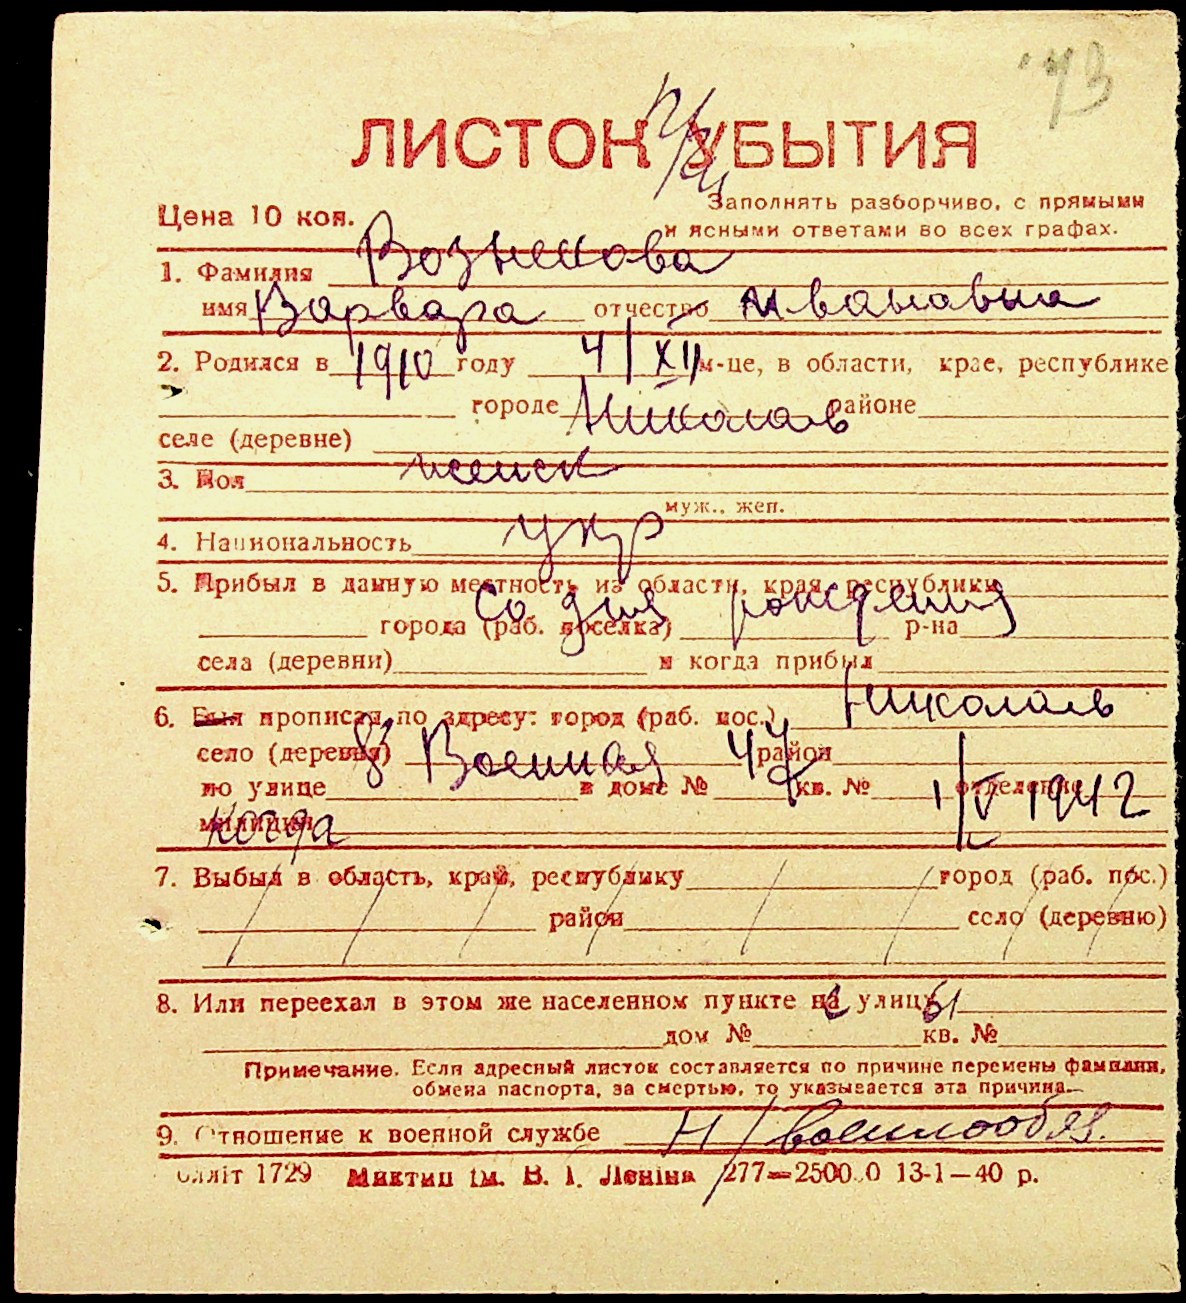 73
ЛИСТОК УБЫТИЯ
Цена 10 коп.
Заполнять разборчиво, с прямыми
и ясными ответами во всех графах.
1. Фамилия Вознекова
имя Варвара отчество Ивановна
2. Родился в 1910 году 4/XII м-це, в области, крае, республике
городе Николаев районе
селе (деревне)
3. Пол женск
муж., жен.
4. Национальность укр
5. Прибыл в данную местность из области, края, республики
со дня рождения
города (раб. поселка) р-на
села (деревни) и когда прибыл
6. Был прописан по адресу: город (раб. пос.) Николаев
село (деревня) 8 Военная 47 район
по улице в доме № кв. № отделение 1/V 1942
милиции когда
7. Выбыл в область, край, республику город (раб. пос.)
район село (деревню)
8. Или переехал в этом же населенном пункте на улицу
дом № кв. №
Примечание. Если адресный листок составляется по причине перемены фамилии,
обмена паспорта, за смертью, то указывается эта причина
9. Отношение к военной службе н/военнообяз.
Окліт 1729 Миктип ім. В. І. Леніна 277—2500.0 13-1—40 р.